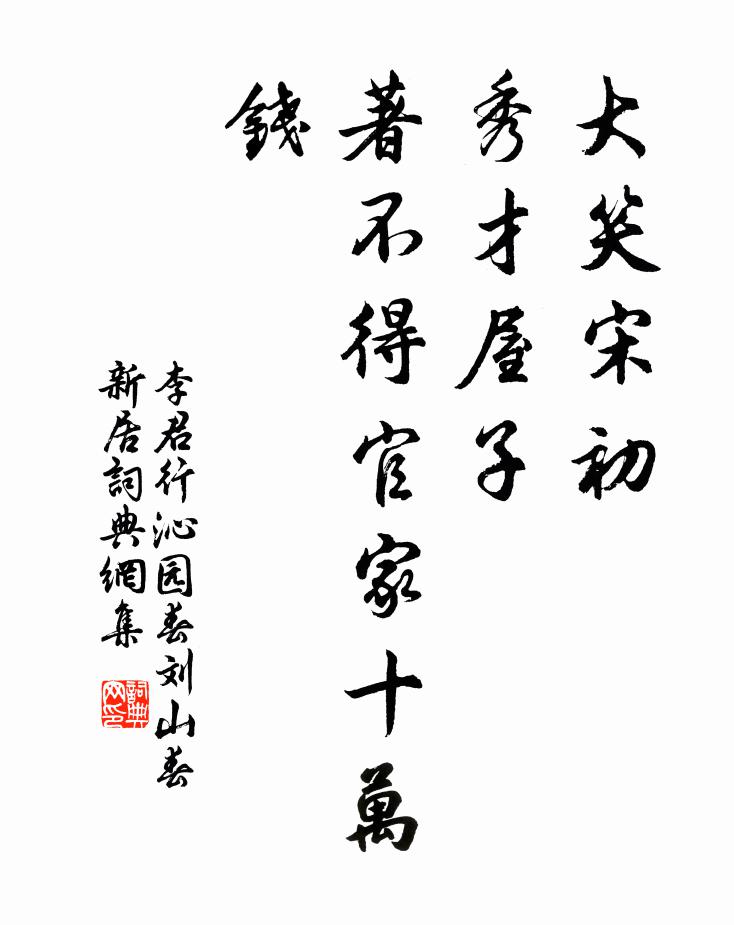 大笑宋初
秀才屋子
著不得官家十萬
錢
李君行沁园春刘山春
新居詞典網集
詞典
网印